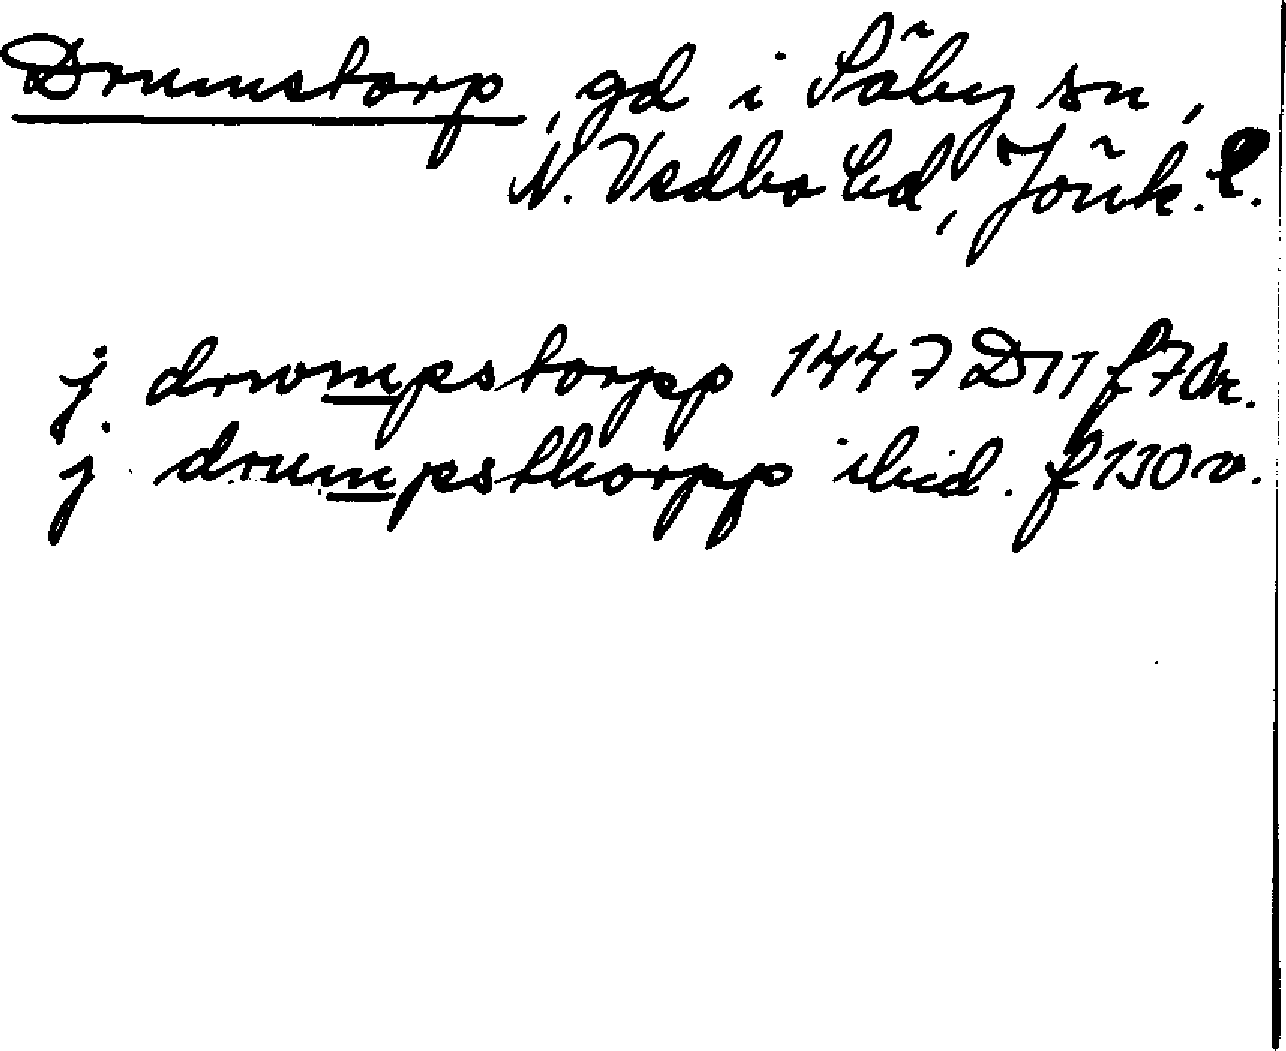 Drumstorp, gd i Säby sn,
N. Vedbo hd, Jönk. l.
j. drwmpstorpp 1447 D11 f 7 h.
j drumpsthorpp ibid. f 130 v.